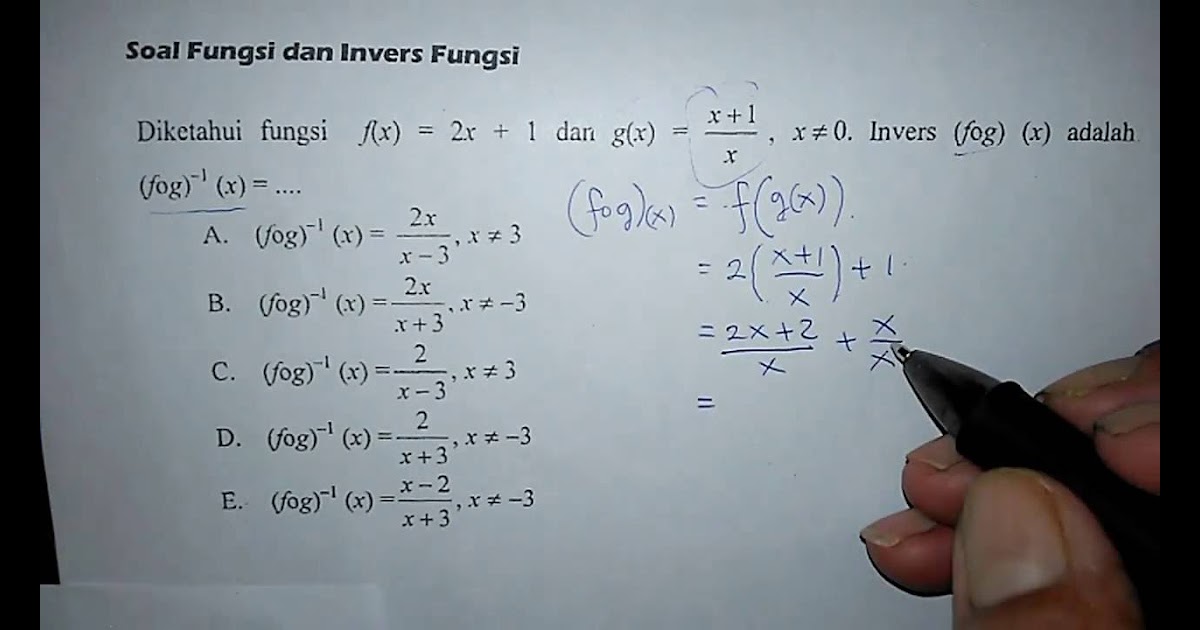 Soal Fungsi dan Invers Fungsi
Diketahui fungsi f(x) = 2x + 1 dan g(x) = (x+1)/x , x ≠ 0. Invers (fog) (x) adalah
(fog)⁻¹ (x) = ....
A. (fog)⁻¹ (x) = 2x/(x − 3) , x ≠ 3
B. (fog)⁻¹ (x) = 2x/(x + 3) , x ≠ −3
C. (fog)⁻¹ (x) = 2/(x − 3) , x ≠ 3
D. (fog)⁻¹ (x) = 2/(x + 3) , x ≠ −3
E. (fog)⁻¹ (x) = (x − 2)/(x + 3) , x ≠ −3
(fog)(x) = f(g(x)).
= 2((x+1)/x) + 1
= (2x+2)/x + x/x
=